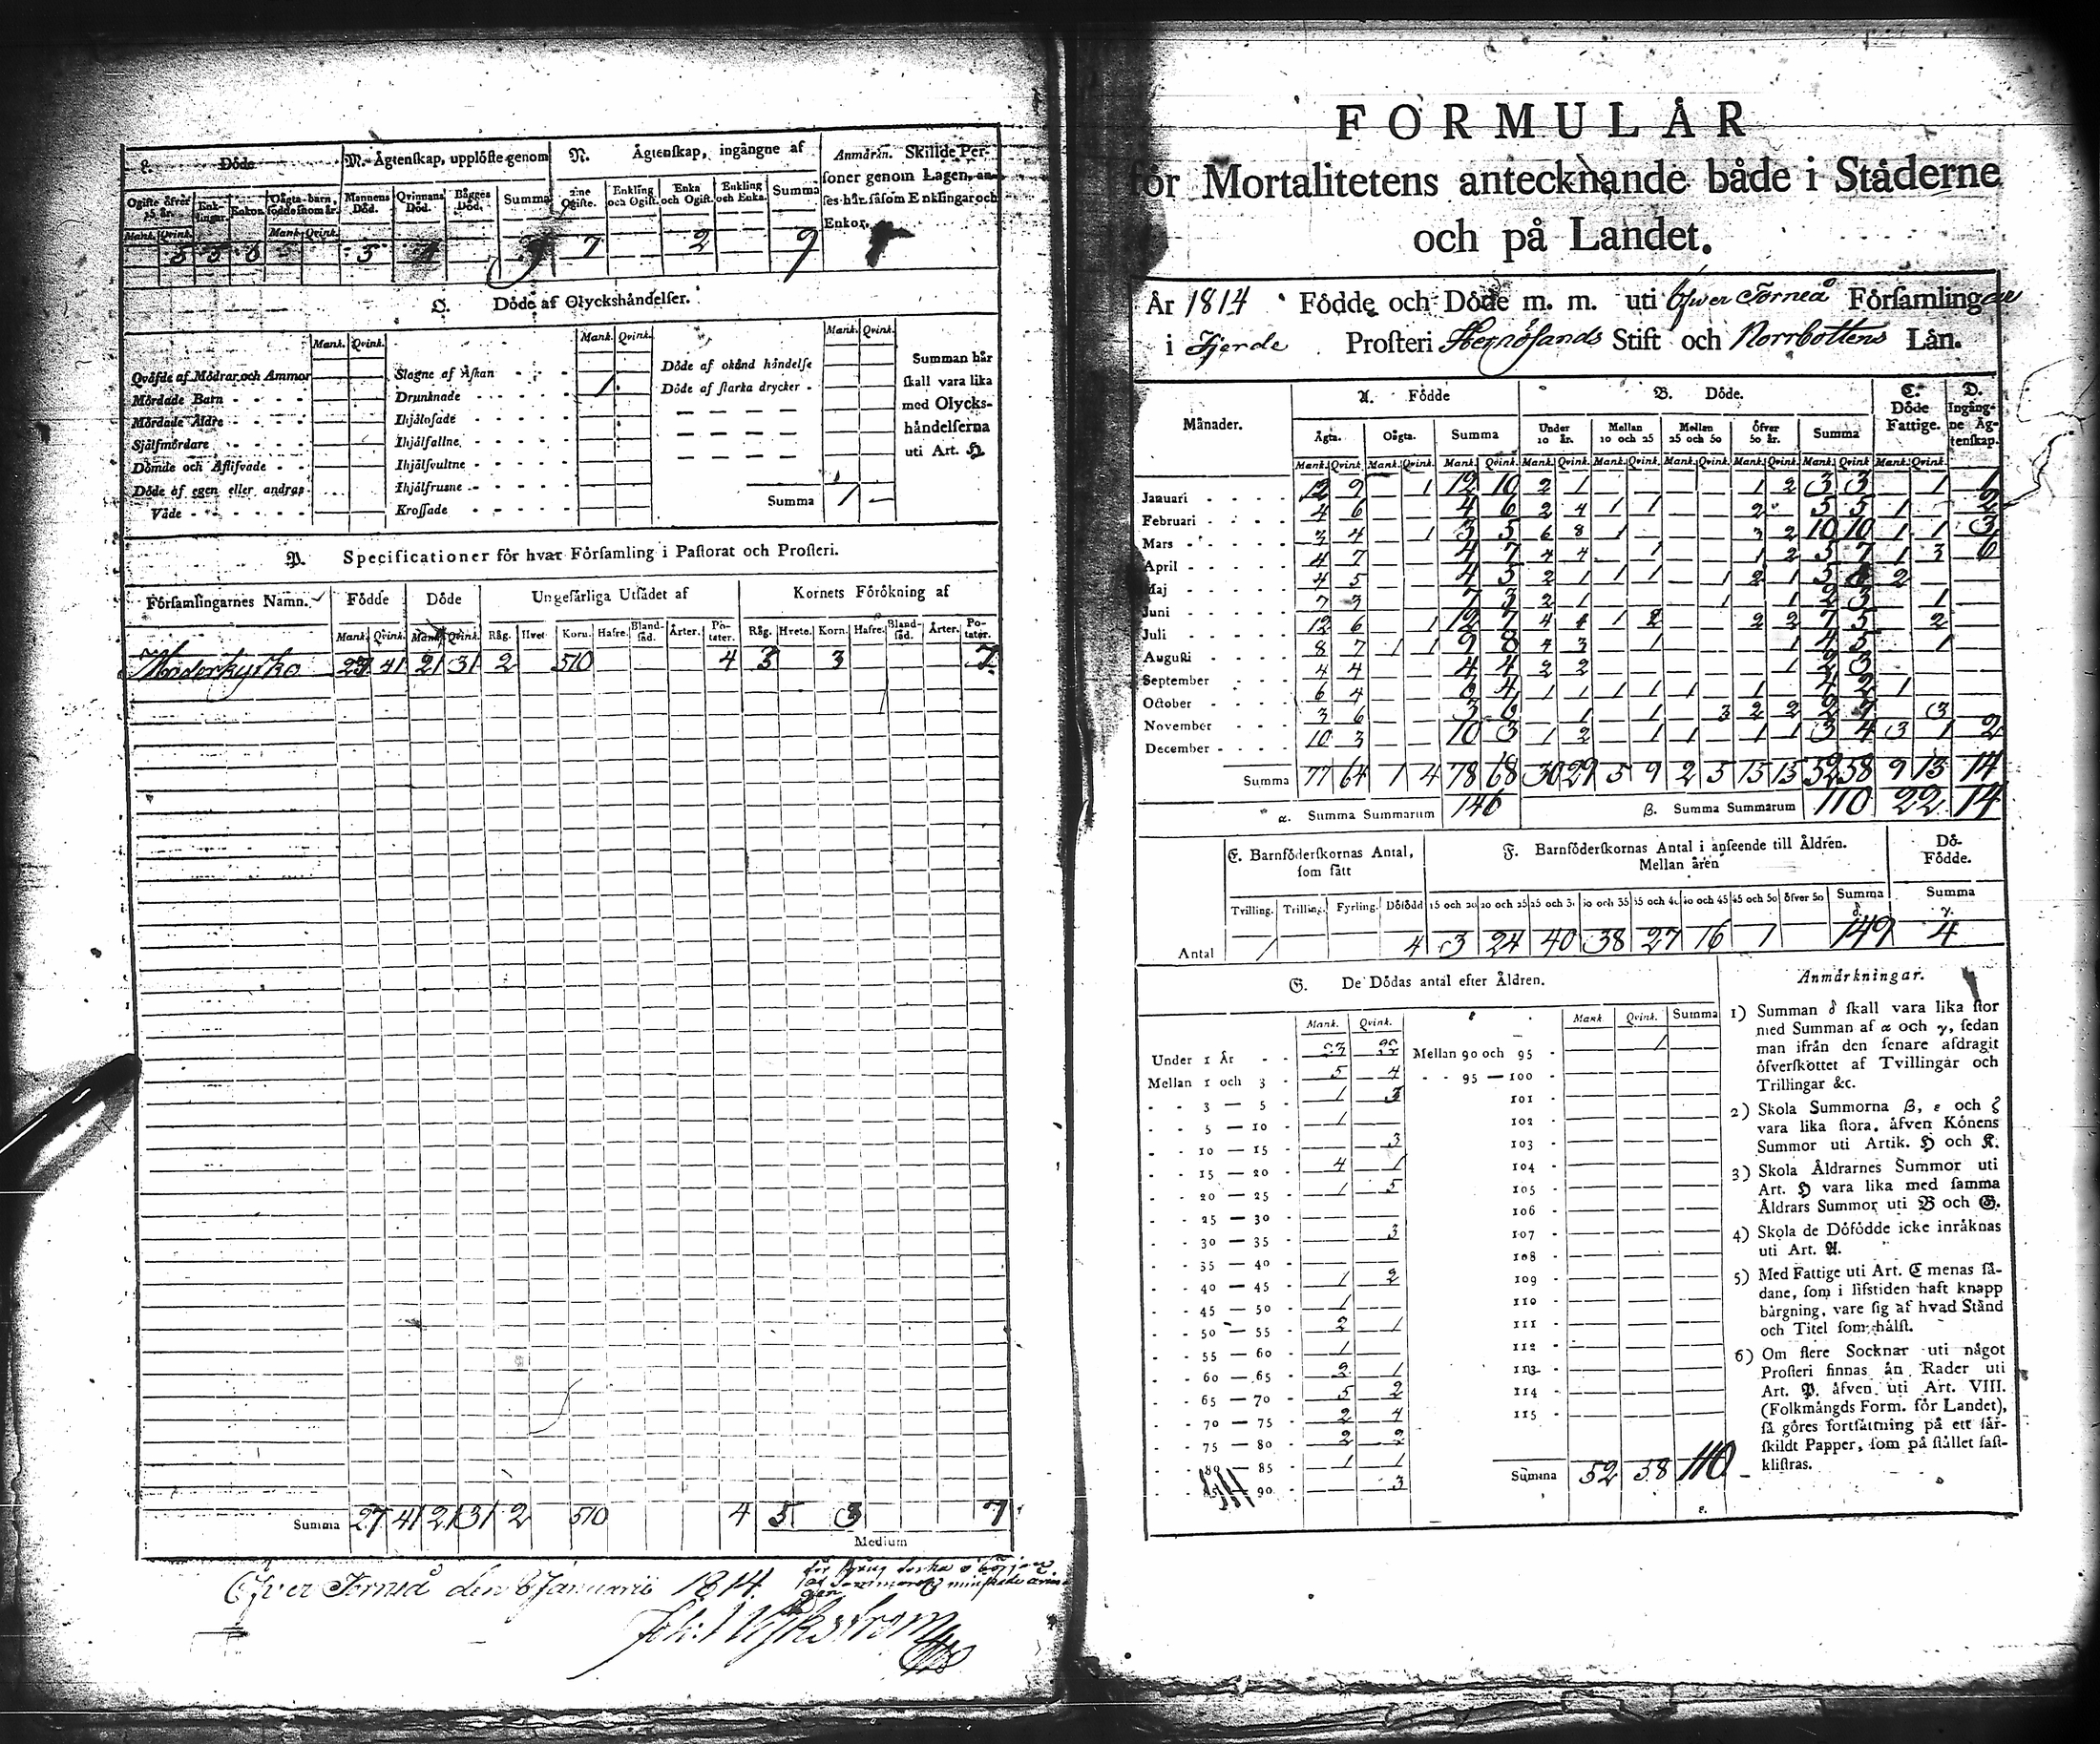 L. Döde
M. Ägtenskap, upplöste genom
N. Ägtenskap, ingångne af
Anmärkn. Skillde Personer genom Lagen, anses här såsom Enklingar och Enkor.
Ogifte öfver 15 år. Enklingar. Enkor. Oägta barn, födde inom år.
Mannens Död. Qvinnans Död. Bägges Död. Summa
Ogifte. Enkling och Ogift. Enka och Ogift. Enkling och Enka. Summa
Mank. Qvink. Mank. Qvink.
5 5 6 5 7 2 9
O. Döde af Olyckshändelser.
Mank. Qvink. Mank. Qvink. Mank. Qvink.
Qväfde af Mödrar och Ammor
Mördade Barn
Mördade Äldre
Självmördare
Dömde och Aflifvade
Döde af egen eller andras Våde
Slagne af Åskan
Drunknade 1
Ihjälosade
Ihjälfallne
Ihjälsvultne
Ihjälfrusne
Krossade
Döde af okänd händelse
Döde af starka drycker
Summa 1 —
Summan här skall vara lika med Olyckshändelserna uti Art. H
P. Specificationer för hvar Församling i Pastorat och Prosteri.
Församlingarnes Namn. Födde Döde Ungefärliga Utsädet af Kornets Förökning af
Mank. Qvink. Mank. Qvink. Råg. Hvet. Korn. Hafre. Blandsäd. Ärter. Potater. Råg. Hvete. Korn. Hafre. Blandsäd. Ärter. Potater.
Moderkyrko 27 41 21 31 2 510 4 3 3 7
Summa 27 41 21 31 2 510 4 5 3 7
Medium
Öfver Torneå den 8 Januarii 1814.
FORMULÄR
för Mortalitetens antecknande både i Städerne
och på Landet.
År 1814 Födde och Döde m. m. uti Öfver Torneå Församling
i Fjerde Prosteri Hernösands Stift och Norrbottens Län.
Månader. A. Födde B. Döde. C. Döde Fattige. D. Ingångne Ägtenskap.
Ägta. Oägta. Summa Under 10 år. Mellan 10 och 25 Mellan 25 och 50 Öfver 50 år. Summa
Mank. Qvink. Mank. Qvink. Mank. Qvink. Mank. Qvink. Mank. Qvink. Mank. Qvink. Mank. Qvink. Mank. Qvink. Mank. Qvink.
Januari 12 9 — 1 12 10 2 1 — — — — 1 2 3 3 1 1
Februari 4 6 — — 4 6 2 4 1 1 — — 2 5 5 1 2
Mars 3 4 — 1 3 5 6 8 1 — — — 3 2 10 10 1 1 3
April 4 7 — — 4 7 4 4 — 1 — — 1 2 5 7 1 3 6
Maj 4 5 — — 4 5 2 1 1 1 — 1 2 1 5 2
Juni 7 3 — — 7 3 2 1 — — — 1 — 1 2 3 1
Juli 12 6 — 1 12 7 4 1 2 2 2 7 5 2
Augusti 8 7 1 1 9 8 4 3 — 1 — — — 1 4 5 1
September 4 4 — — 4 4 2 2 — — — — — 1 2 3
October 6 4 — — 6 4 1 1 1 1 1 — 1 — 4 2 1
November 3 6 — — 3 6 — 1 — 1 — 3 2 2 2 7 3
December 10 3 — — 10 3 1 2 — 1 1 — 1 1 3 4 3 1 2
Summa 77 64 1 4 78 68 30 29 5 9 2 5 15 15 52 58 9 13 14
α. Summa Summarum 146 β. Summa Summarum 110 22 14
E. Barnföderskornas Antal, som fått
F. Barnföderskornas Antal i anseende till Åldren. Mellan åren
Döfödde.
Tvilling. Trilling. Fyrling. Döfödd 15 och 20 20 och 25 25 och 30 30 och 35 35 och 40 40 och 45 45 och 50 öfver 50 Summa Summa
δ. γ.
Antal 1 4 3 24 40 38 27 16 1 149 4
G. De Dödas antal efter Åldren.
Mank. Qvink. Mank. Qvink. Summa
Under 1 År 23 22
Mellan 1 och 3 5 4
3 — 5 1 3
5 — 10 1
10 — 15 3
15 — 20 4 1
20 — 25 1 5
25 — 30
30 — 35 3
35 — 40
40 — 45 1 2
45 — 50 1
50 — 55 2 1
55 — 60 1
60 — 65 2 1
65 — 70 5 2
70 — 75 2 4
75 — 80 2 2
80 — 85 1 1
85 — 90 3
Mellan 90 och 95 1
95 — 100
101
102
103
104
105
106
107
108
109
110
111
112
113
114
115
Summa 52 58 110
ε.
Anmärkningar.
1) Summan δ skall vara lika stor
med Summan af α och γ, sedan
man ifrån den senare afdragit
öfverskottet af Tvillingar och
Trillingar &c.
2) Skola Summorna β, ε och ζ
vara lika stora, äfven Könens
Summor uti Artik. H och K.
3) Skola Åldrarnes Summor uti
Art. H vara lika med samma
Åldrars Summor uti B och G.
4) Skola de Döfödde icke inräknas
uti Art. A.
5) Med Fattige uti Art. C menas så-
dane, som i lifstiden haft knapp
bärgning, vare sig af hvad Stånd
och Titel som hälst.
6) Om flere Socknar uti något
Prosteri finnas än Rader uti
Art. P. äfven uti Art. VIII.
(Folkmängds Form. för Landet),
så göres fortsättning på ett sär-
skildt Papper, som på stället fast-
klistras.